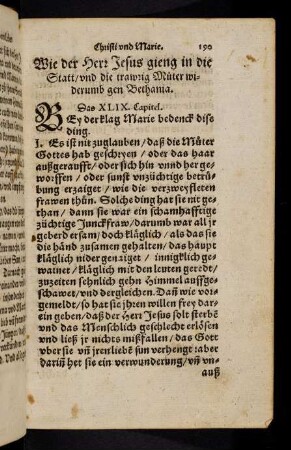 Christi vnd Marie. 190
Wie der Herr Jesus gieng in die
Statt/vnd die trawrig Můter wi-
derumb gen Bethania.
Das XLIX. Capitel.
BEy der klag Marie bedenck dise
ding.
I. Es ist nit zuglauben / daß die Můter
Gottes hab geschryen / oder das haar
außgeraufft / oder sich hin vnnd her ge-
worffen / oder sunst vnzüchtige betrü-
bung erzaiget / wie die verzweyfleten
frawen thůn. Solche ding hat sie nit ge-
than / dann sie war ein schamhafftige
züchtige Junckfraw/darumb war all jr
geberd ersam/doch kläglich / als das sie
die händ zusamen gehalten / das haupt
kläglich nider genaiget / innigklich ge-
wainet / kläglich mit den leuten geredt/
zuzeiten sehnlich gehn Himmel auffge-
schawet/vnd dergleichen. Dañ wie vor-
gemeldt/so hat sie jhren willen frey dar-
ein geben/daß der Herr Jesus solt sterbē
vnd das Menschlich geschlecht erlösen
vnd ließ jr nichts mißfallen / das Gott
vber sie vñ jren liebē sun verhengt : aber
dariñ het sie ein verwunderung/vñ vn-
auß